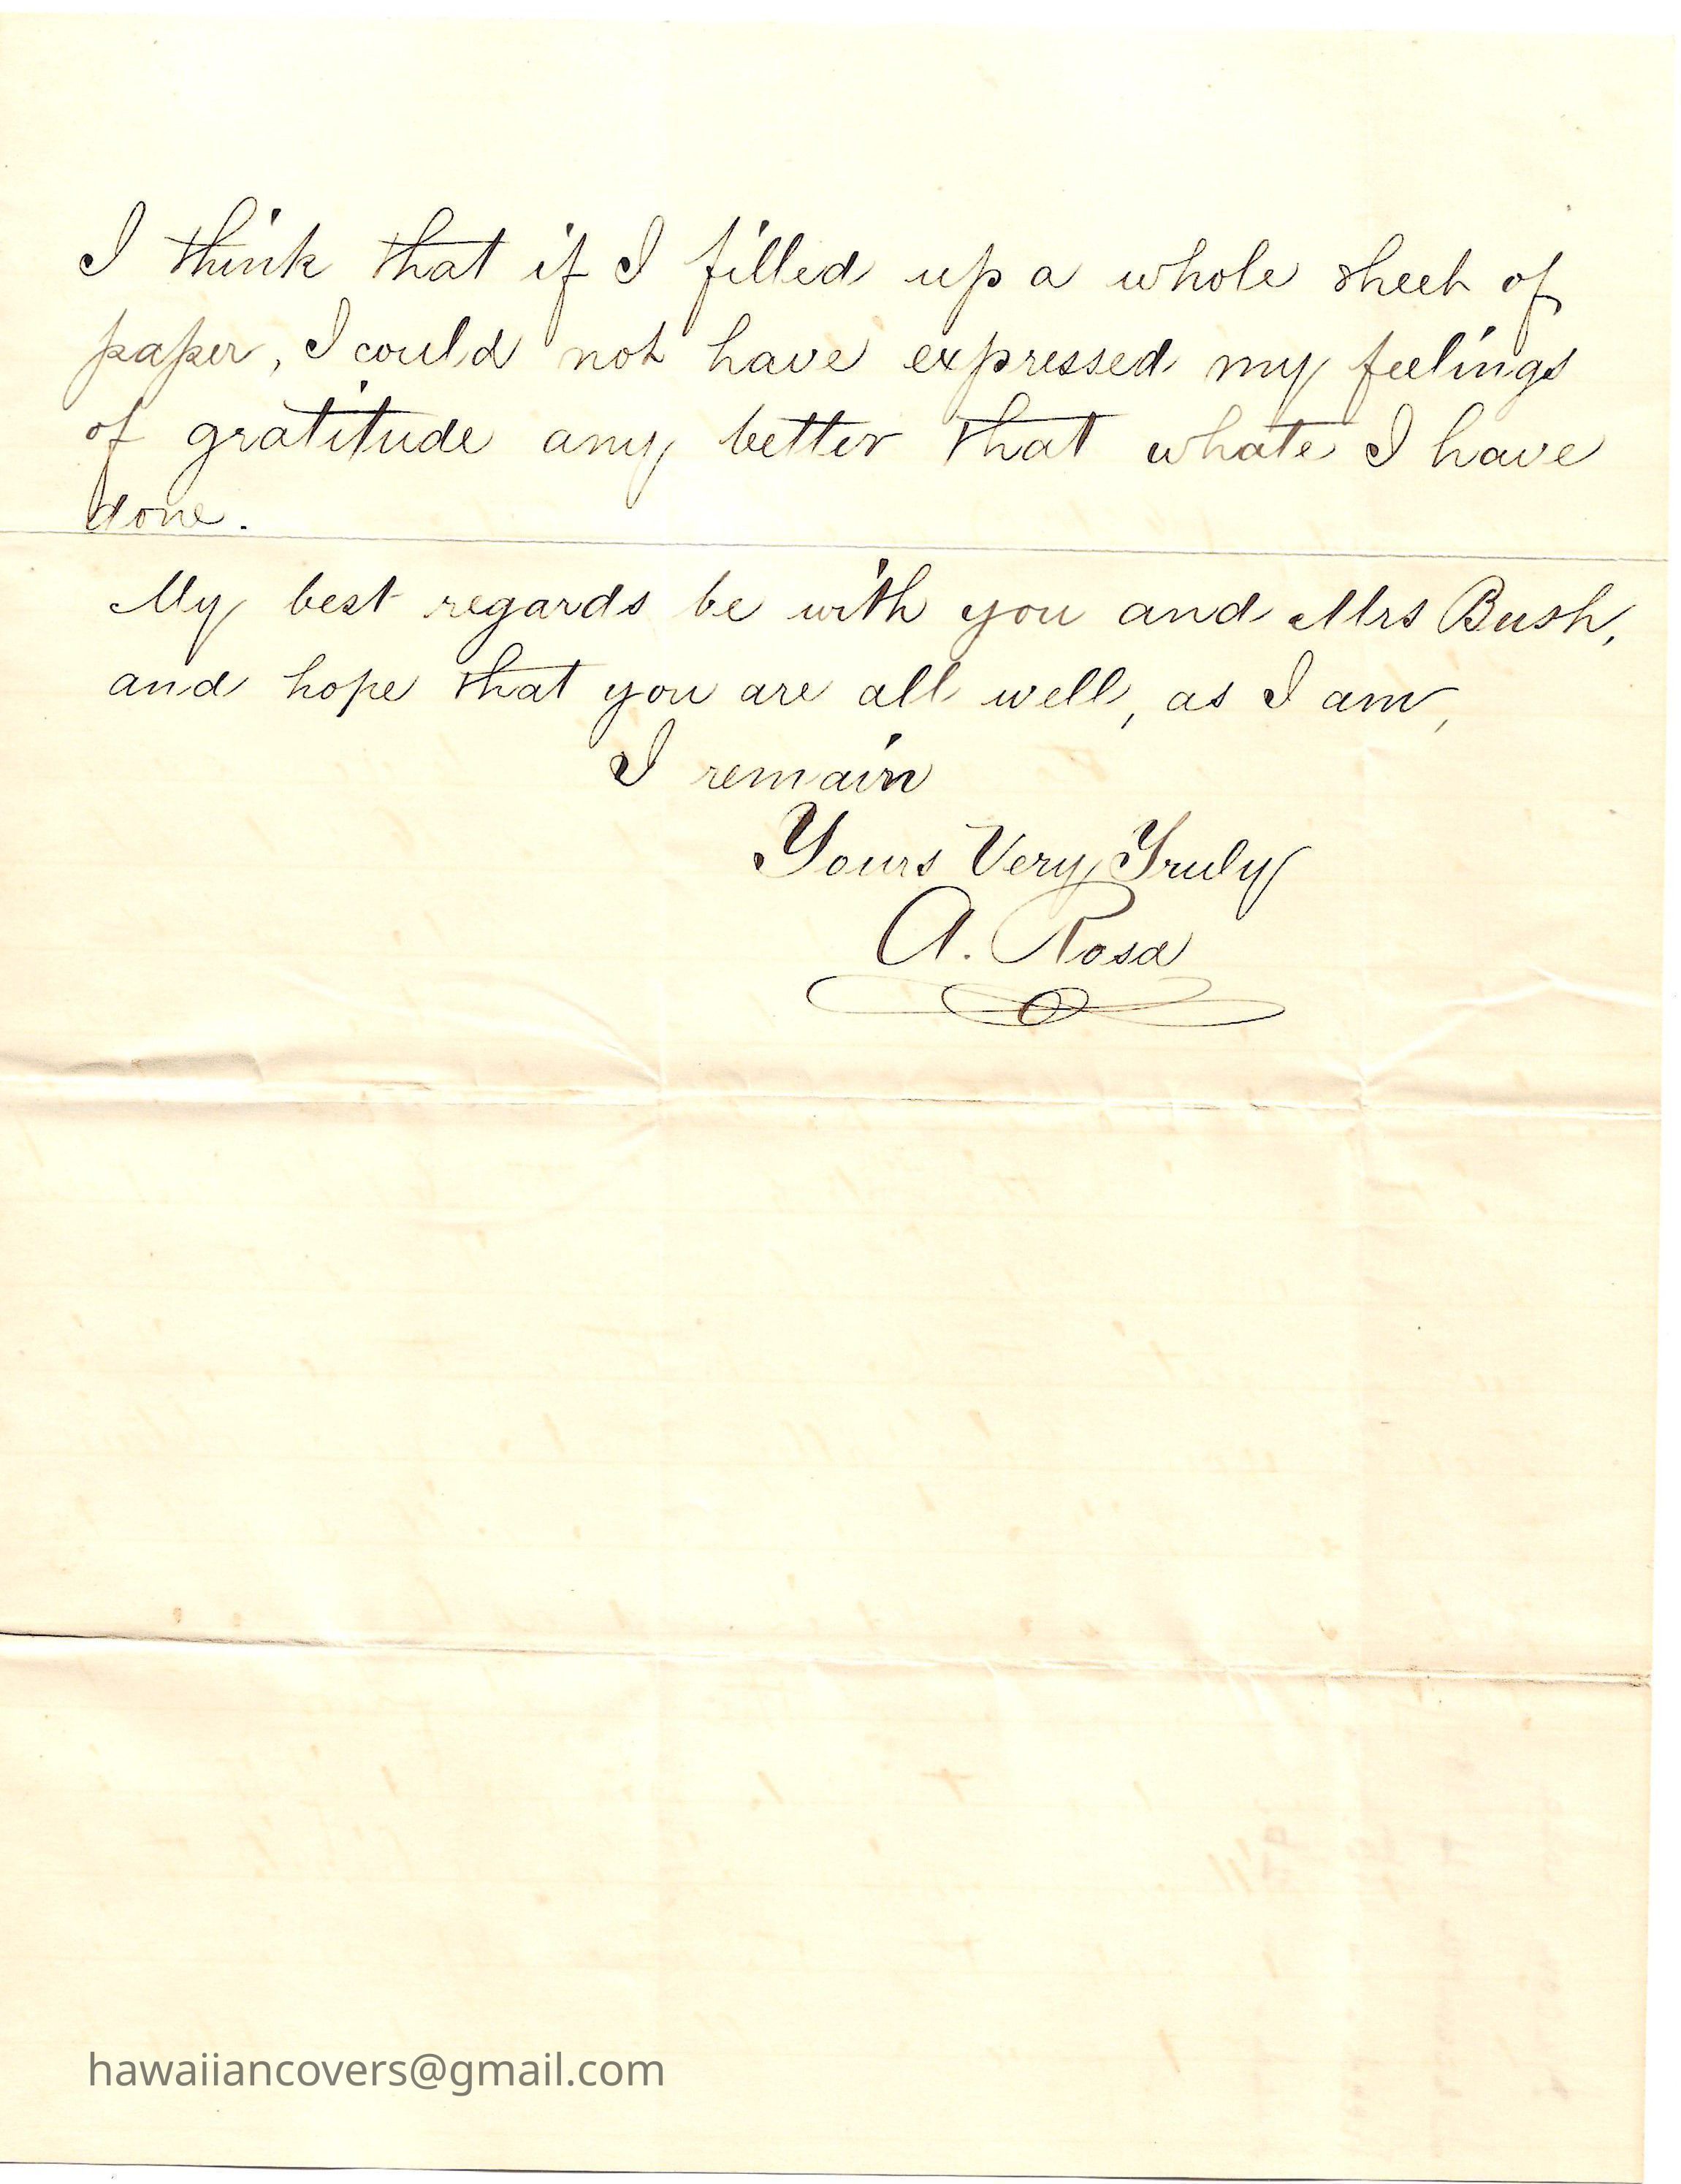 I think that if I filled up a whole sheet of
paper, I could not have expressed my feelings
of gratitude any better that whate I have
done.
My best regards be with you and Mrs Bush,
and hope that you are all well, as I am,
I remain
Yours Very Truly
A. Rosa
hawaiiancovers@gmail.com